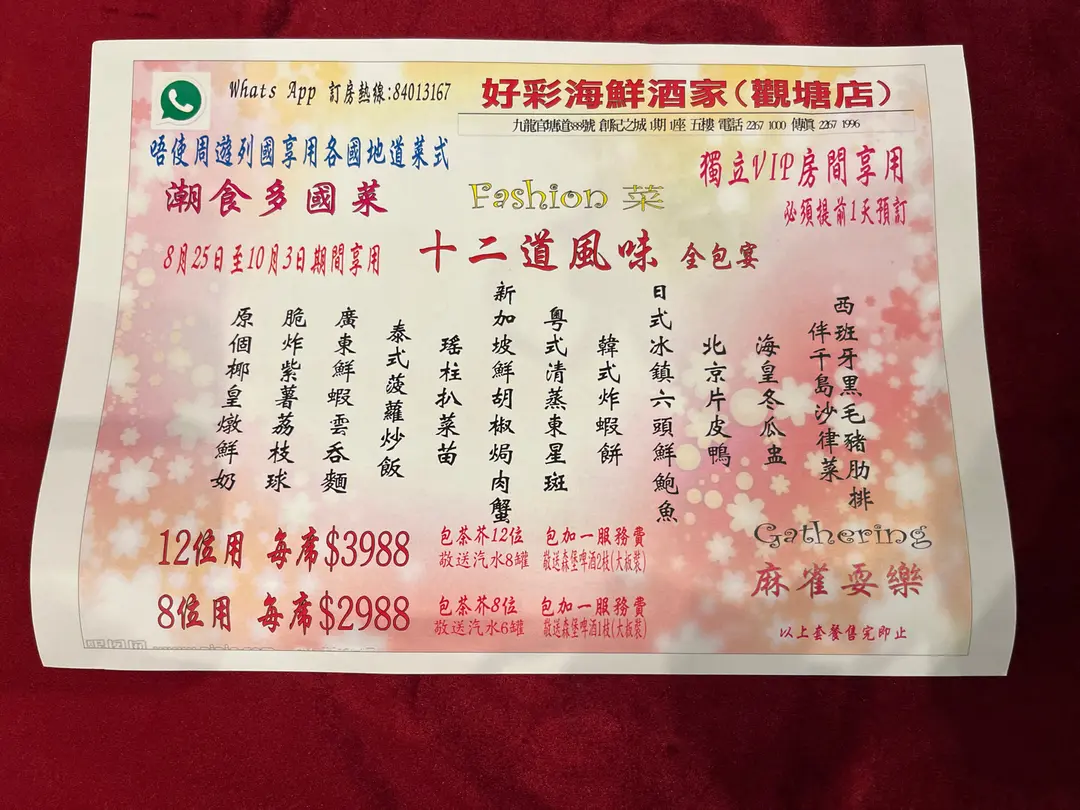 Whats App 訂房熱線:84013167
好彩海鮮酒家(觀塘店)
九龍官塘道388號 創紀之城 1期 1座 五樓 電話 2267 1000 傳真 2267 1996
唔使周遊列國享用各國地道菜式
潮食多國菜
Fashion 菜
獨立VIP房間享用
必須提前1天預訂
8月25日至10月3日期間享用
十二道風味 全包宴
西班牙黑毛豬肋排
伴千島沙律菜
海皇冬瓜盅
北京片皮鴨
日式冰鎮六頭鮮鮑魚
韓式炸蝦餅
粵式清蒸東星斑
新加坡鮮胡椒焗肉蟹
瑤柱扒菜苗
泰式菠蘿炒飯
廣東鮮蝦雲吞麵
脆炸紫薯荔枝球
原個椰皇燉鮮奶
12位用 每席$3988
包茶芥12位 包加一服務費
敬送汽水8罐 敬送森堡啤酒2枝(大板裝)
8位用 每席$2988
包茶芥8位 包加一服務費
敬送汽水6罐 敬送森堡啤酒1枝(大板裝)
Gathering
麻雀耍樂
以上套餐售完即止